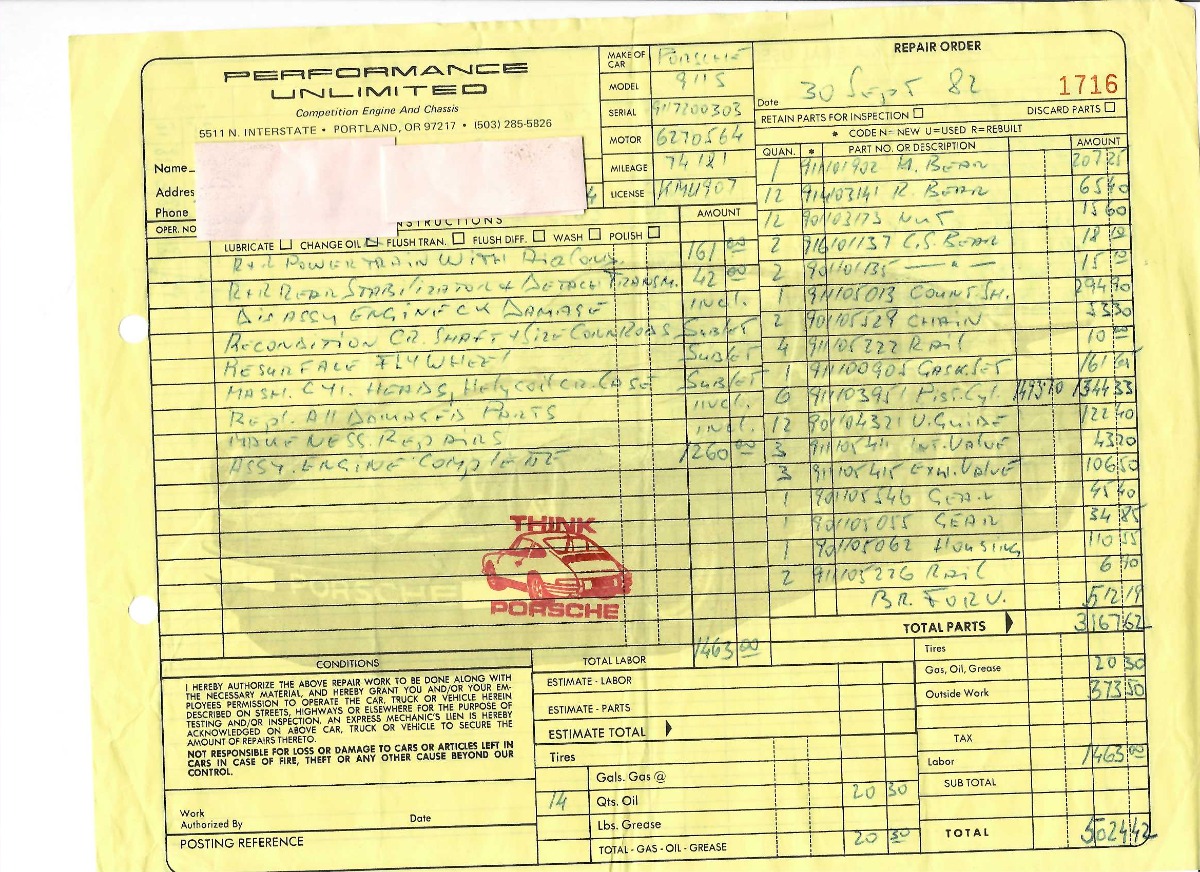 PERFORMANCE
UNLIMITED
Competition Engine And Chassis
5511 N. INTERSTATE • PORTLAND, OR 97217 • (503) 285-5826
Name
Addres
Phone
MAKE OF CAR PORSCHE
MODEL 911S
SERIAL 9117200303
MOTOR 6270564
MILEAGE 74181
LICENSE KMU907
REPAIR ORDER
Date 30 Sept 82 1716
RETAIN PARTS FOR INSPECTION DISCARD PARTS
* CODE N=NEW U=USED R=REBUILT
OPER. NO NSTRUCTIONS AMOUNT
LUBRICATE CHANGE OIL FLUSH TRAN. FLUSH DIFF. WASH POLISH
R+R POWERTRAIN WITH AIRCOND. 161 00
R+R REAR STABILIZATOR + DETACH TRANSM. 42 00
DISASSY ENGINE CK DAMAGE INCL.
RECONDITION CR. SHAFT + SIZE CONNRODS SUBLET
RESURFACE FLYWHEEL SUBLET
MASH. CYL. HEADS, HELYCOIL CR. CASE SUBLET
REPL. ALL DAMAGED PARTS INCL.
MAKE NESS. REPAIRS INCL.
ASSY. ENGINE COMPLETE 1260 00
THINK
PORSCHE
TOTAL LABOR 1463 00
QUAN. * PART NO. OR DESCRIPTION AMOUNT
1 911101902 M. BEAR 207 25
12 911103141 R. BEAR 65 40
12 901103173 NUT 15 60
2 C.S. BEAR 18
2 901101135 — " — 15
1 911105013 COUNT SH. 294 90
2 901105529 CHAIN 53 30
4 911105222 RAIL 10 00
1 911100905 GASKSET 161 65
6 911103951 PIST. CYL. 1344 33
12 901104321 V. GUIDE 122 40
3 911105411 INT. VALVE 43 20
3 911105415 EXH. VALVE 106 50
1 901105546 GEAR 45 40
1 901105055 GEAR 34 85
1 901105062 HOUSING 110 55
2 911105226 RAIL 6 90
BR. FORW. 512 19
TOTAL PARTS 3167 62
CONDITIONS
I HEREBY AUTHORIZE THE ABOVE REPAIR WORK TO BE DONE ALONG WITH
THE NECESSARY MATERIAL, AND HEREBY GRANT YOU AND/OR YOUR EM-
PLOYEES PERMISSION TO OPERATE THE CAR, TRUCK OR VEHICLE HEREIN
DESCRIBED ON STREETS, HIGHWAYS OR ELSEWHERE FOR THE PURPOSE OF
TESTING AND/OR INSPECTION. AN EXPRESS MECHANIC'S LIEN IS HEREBY
ACKNOWLEDGED ON ABOVE CAR, TRUCK OR VEHICLE TO SECURE THE
AMOUNT OF REPAIRS THERETO.
NOT RESPONSIBLE FOR LOSS OR DAMAGE TO CARS OR ARTICLES LEFT IN
CARS IN CASE OF FIRE, THEFT OR ANY OTHER CAUSE BEYOND OUR
CONTROL.
Work
Authorized By Date
POSTING REFERENCE
ESTIMATE - LABOR
ESTIMATE - PARTS
ESTIMATE TOTAL
Tires
Gals. Gas @
14 Qts. Oil 20 30
Lbs. Grease
TOTAL - GAS - OIL - GREASE 20 30
Tires
Gas, Oil, Grease 20 30
Outside Work 373 50
TAX
Labor 1463 00
SUB TOTAL
TOTAL 5024 42